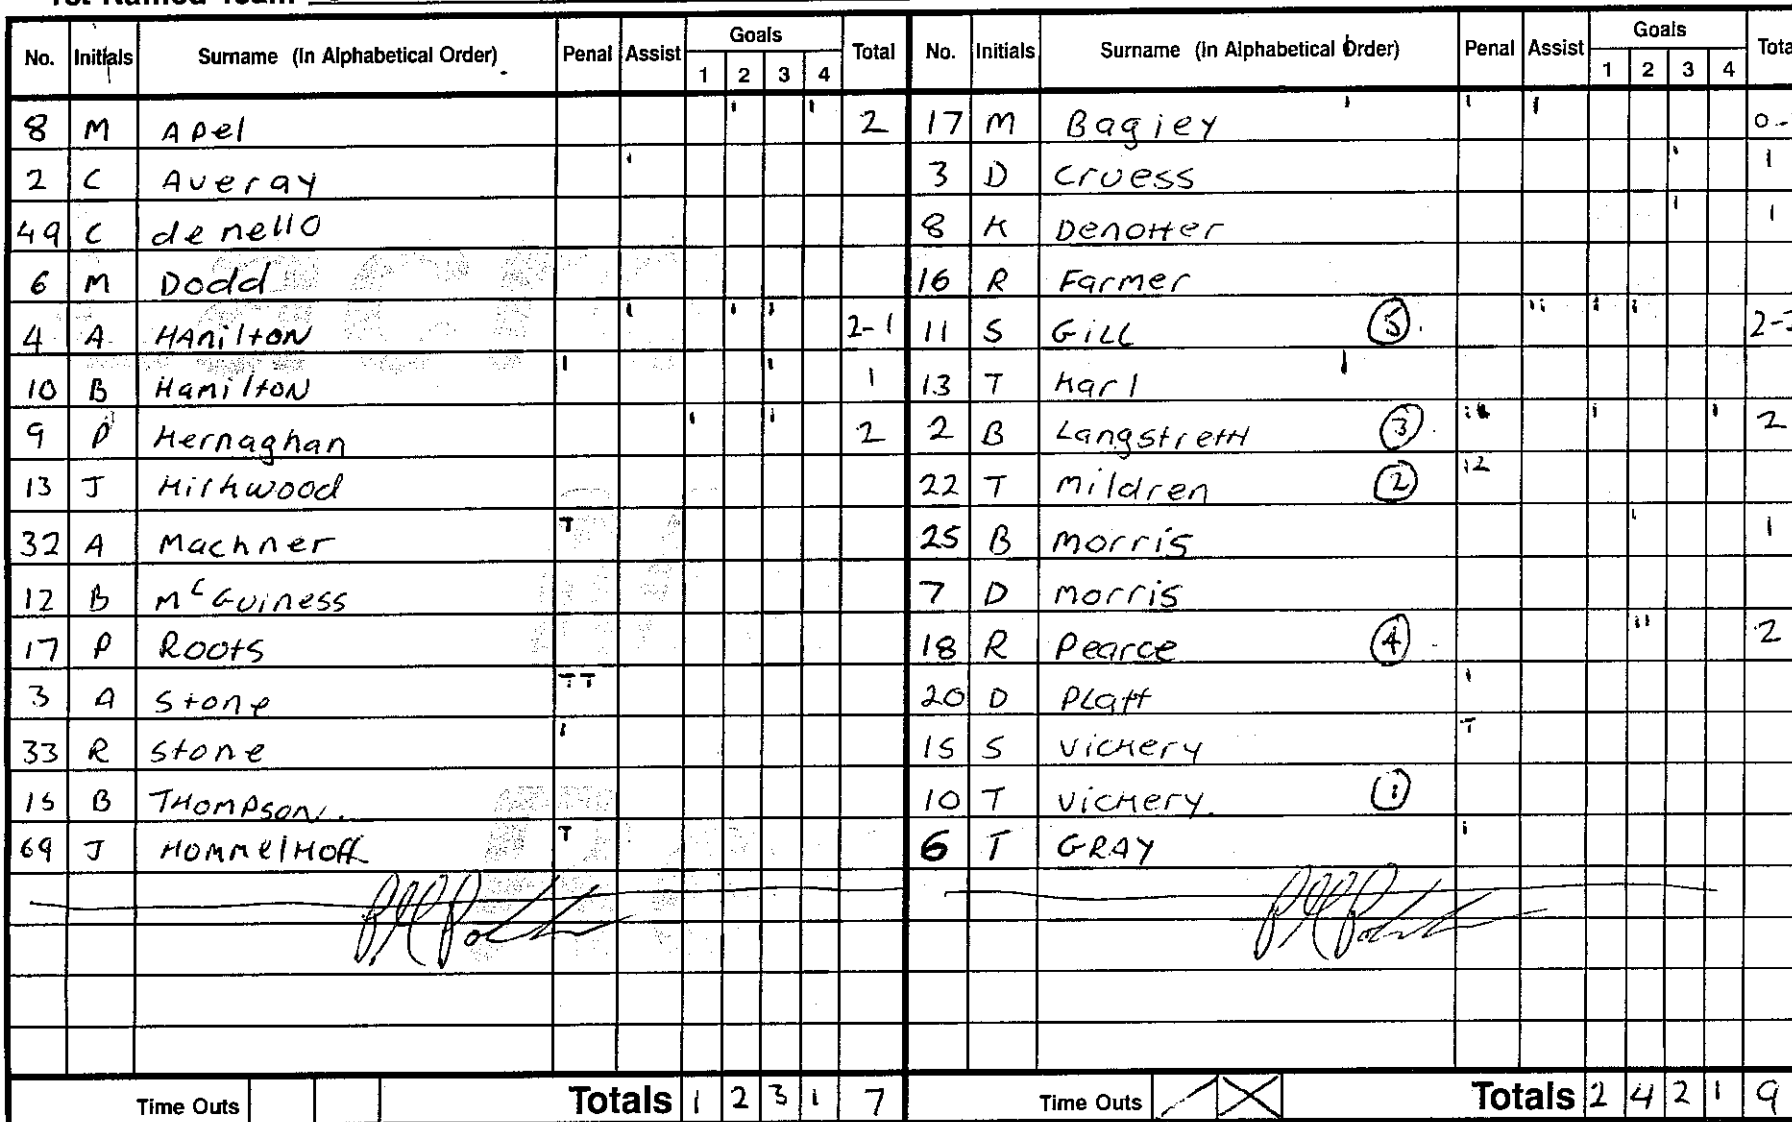 No. Initials Surname (In Alphabetical Order) Penal Assist Goals 1 2 3 4 Total
8 M Apel ı ı 2
2 C Averay ı
49 C de nello
6 M Dodd
4 A HAnilton ı ı ı 2-1
10 B Hamilton ı ı 1
9 P Hernaghan ı ı 2
13 J Hirhwood
32 A Machner T
12 B McGuiness
17 P Roots
3 A Stone TT
33 R Stone ı
15 B THOMPSON.
69 J HommelHoff T
Time Outs Totals 1 2 3 1 7
No. Initials Surname (In Alphabetical Order) Penal Assist Goals 1 2 3 4
17 M Bagiey ı ı
3 D Cruess ı 1
8 K Denotter ı 1
16 R Farmer
11 S Gill 5 ıı ı ı
13 T Karl
2 B Langstreth 3 ı ı 2
22 T Mildren 2 ı2
25 B Morris ı 1
7 D Morris
18 R Pearce 4 ıı 2
20 D Platt ı
15 S Vickery T
10 T Vickery. 1
6 T GRAY ı
Time Outs Totals 2 4 2 1 9